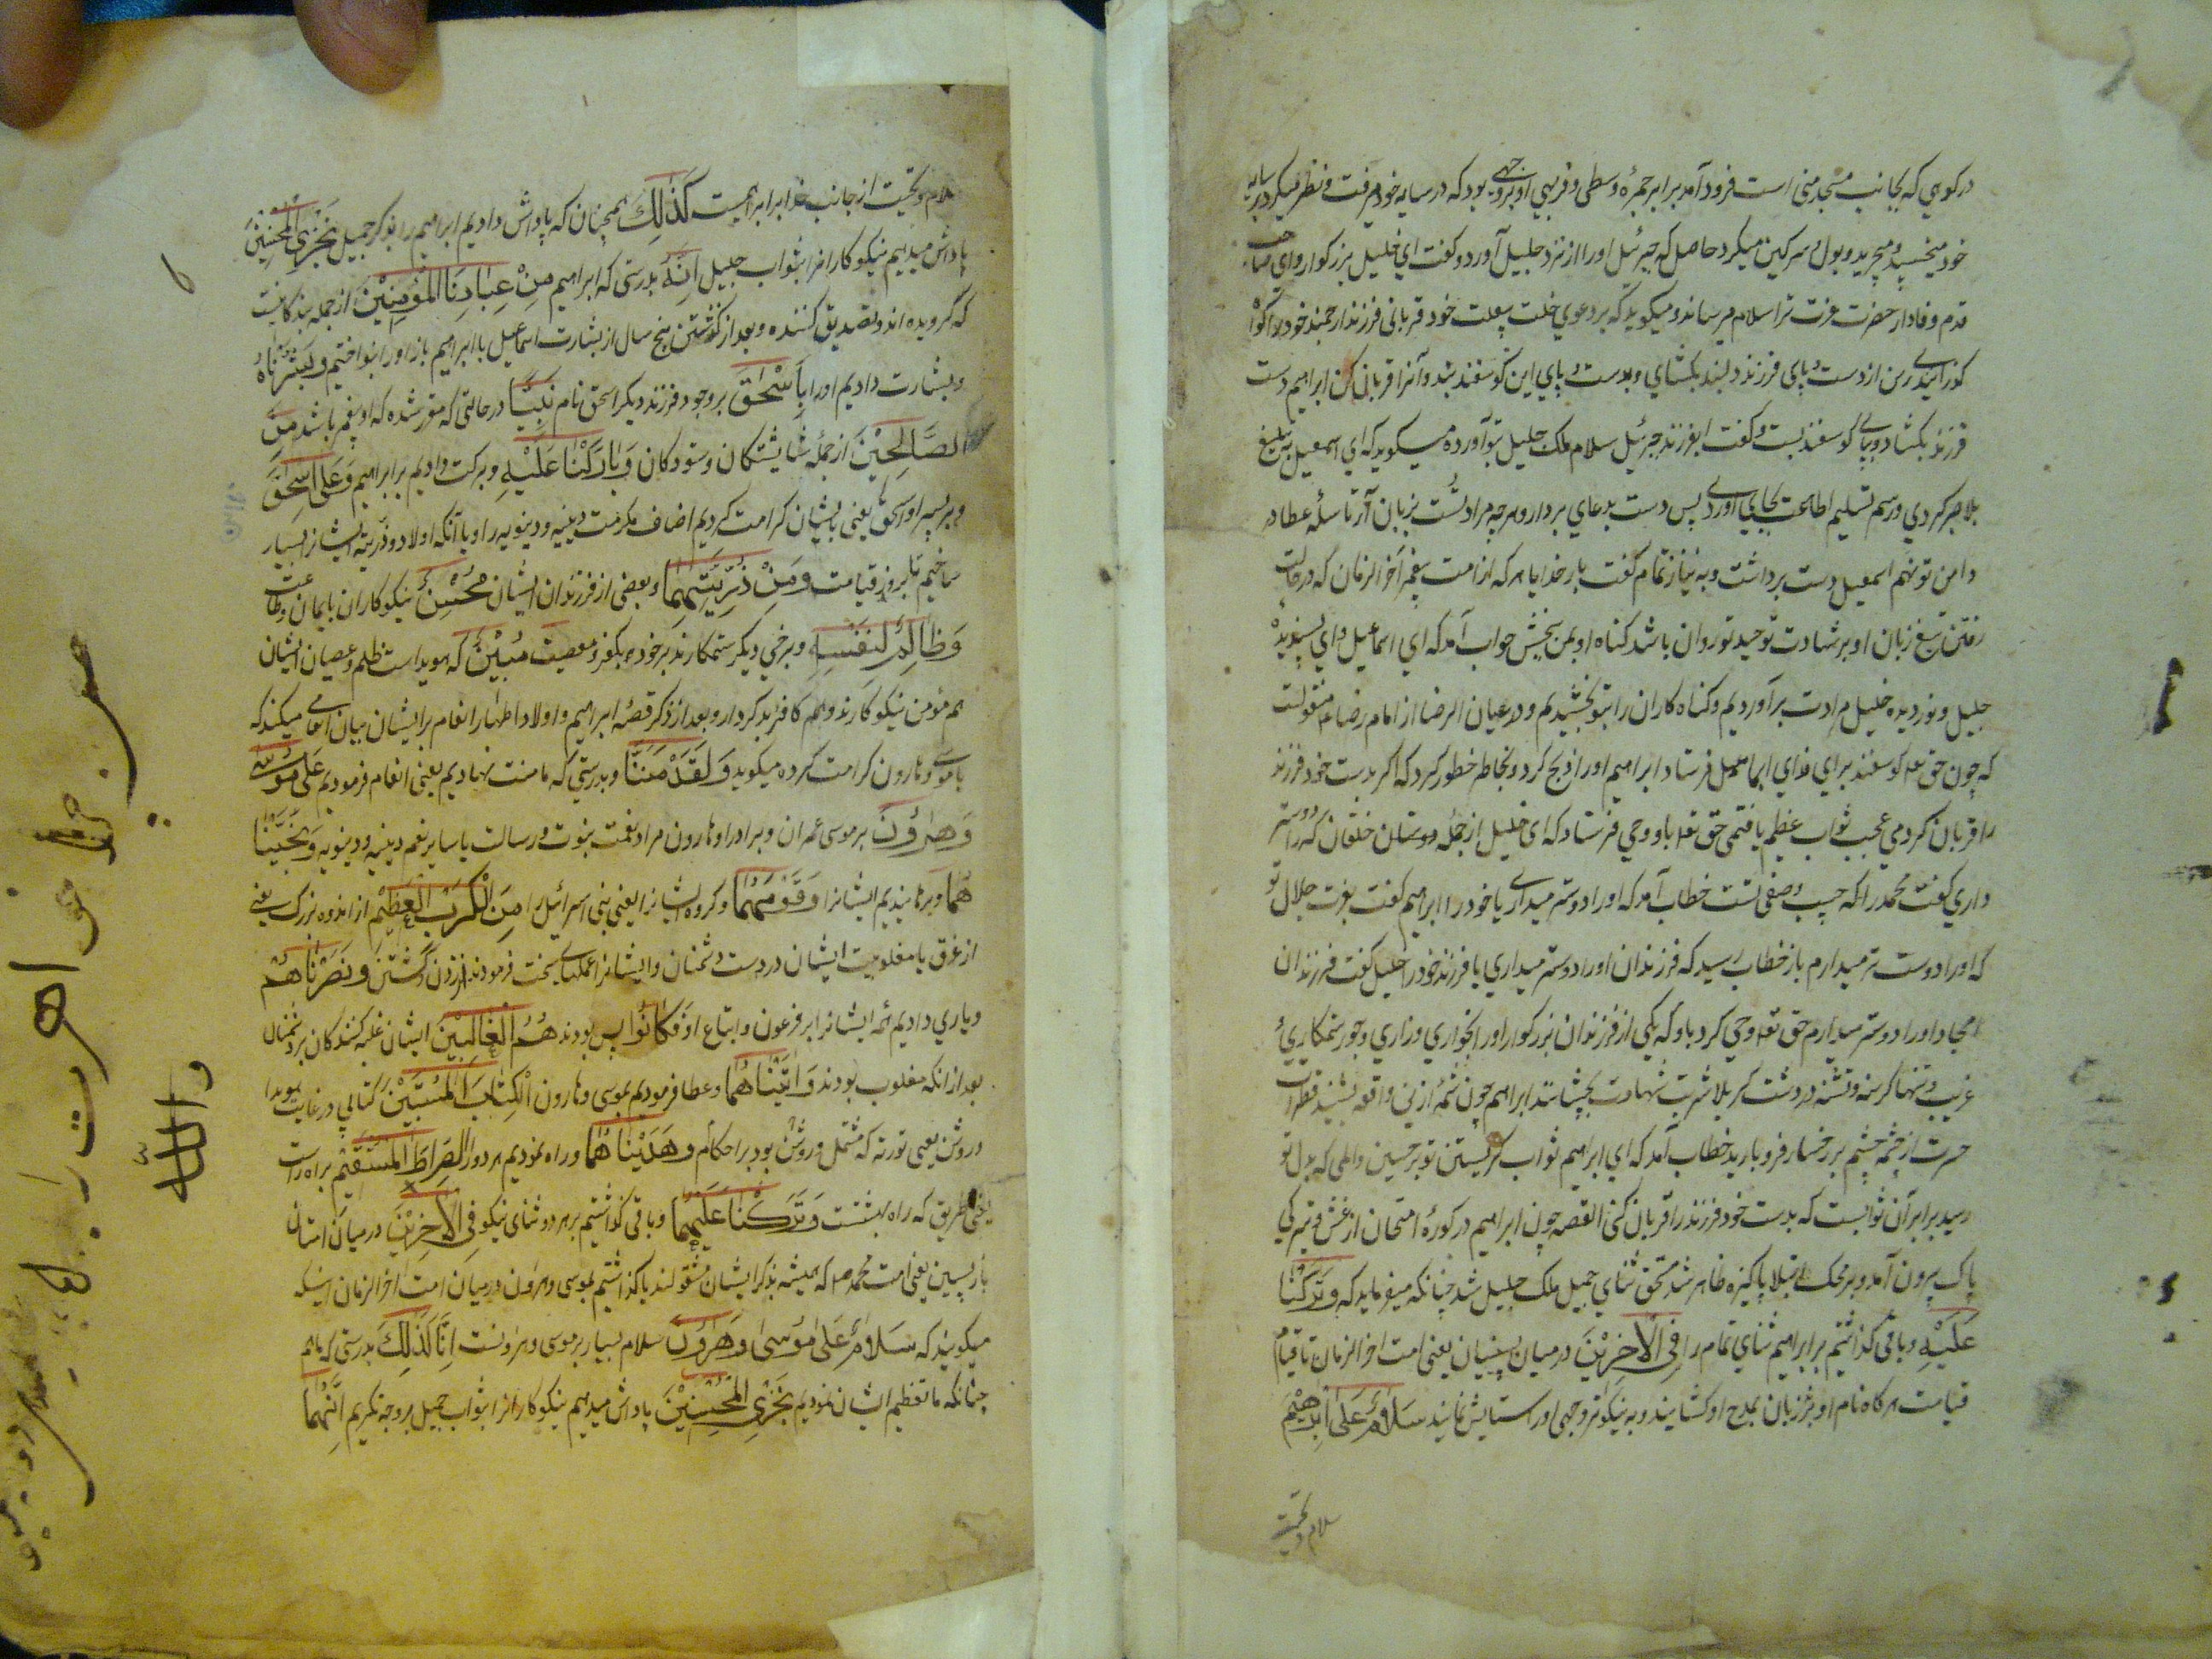 در کوهی که بجانب مسجد منی است فرود آمد برابر جمرهٔ وسطی و فربهی او بروجهی بود که در سایه خود میرفت و نظر میکرد در سایه
خود میخسپید و میچرید و بول و سرکین میکرد حاصل که جبرئیل او را از نزد جلیل آورد و کفت ای خلیل بزرکوار و ای صاحب
قدم وفادار حضرت عزت ترا سلام میرساند و میکوید که بر دعوی خلت بعلت خود قربانی فرزند ارجمند خود را کواه
کذرانیدی رسن از دست و پای فرزند دلبند بکشای و بدست و پای این کوسفند بند و آنرا قربان کن ابراهیم دست
فرزند بکشاد و پای کوسفند بست و کفت ایفرزند جبرئیل سلام ملک جلیل بتو آورده میکوید که ای اسمعیل بر تیغ
بلا صبر کردی و رسم تسلیم اطاعت بجای آوردی پس دست بدعای بردار و هرچه مراد تست بزبان آر تا سائله عطا در
دامن تو نهم اسمعیل دست برداشت و به نیاز تمام کفت بار خدایا هر که از امت پیغمبر آخر الزمان که در حالت
رفتن تیغ زبان او بر شهادت توحید تو روان باشد کناه او بمن بخش جواب آمد که ای اسماعیل و ای پسندیدهٔ
جلیل و نور دیده خلیل مرادت برآوردیم و کناه کاران را بتو بخشیدیم و در عیان الرضا از امام رضا ع منقولست
که چون حق تعه کوسفند برای فدای اسمعیل فرستاد ابراهیم او را ذبح کرد و بخاطر خطور کرد که اکر بدست خود فرزند
را قربان کردمی عجب ثواب عظیم یافتمی حق تعه باو وحی فرستاد که ای خلیل از جمله دوستان خلقان که را دوستر
داری کفت محمد را که حبیب و صفی تست خطاب آمد که او را دوستر میداری یا خود را ابراهیم کفت بعزت جلال تو
که او را دوست تر میدارم باز خطاب رسید که فرزندان او را دوستر میداری یا فرزند خود را خلیل کفت فرزندان
امجاد او را دوستر میدارم حق تعه وحی کرد باو که یکی از فرزندان بزرکوار او را بخواری و زاری و جور و ستمکاری
غریب و تنها کرسنه و تشنه در دشت کربلا شربت شهادت بچشانند ابراهیم چون شمهٔ ازین واقعه بشنید قطرات
حسرت از چشمه چشم بر رخسار فرو بارید خطاب آمد که ای ابراهیم ثواب کریستن تو بر حسین و المی که بدل تو
رسید برابر آن ثوابست که بدست خود فرزند را قربان کنی القصه چون ابراهیم در کورهٔ امتحان از غش و تیرکی
پاک بیرون آمد و بر محک ابتلا پاکیزه ظاهر شد مستحق ثنای جمیل ملک جلیل شد چنانکه میفرماید که وَتَرَکْنَا
عَلَیْهِ و باقی کذاشتیم بر ابراهیم ثنای تمام را فِی الْآخِرِیْنَ در میان پسینیان یعنی امت اخر الزمان تا قیام
قیامت هرکاه نام او برند زبان بمدح او کشایند و به نیکوتر وجهی او را ستایش نمایند سَلَامٌ عَلَی اِبْرَاهِیْمَ
سلام و تحیت
سلام و تحیت از جانب خدا بر ابراهیمست کَذَلِکَ همچنان که پاداش دادیم ابراهیم را بذکر جمیل نَجْزِی الْمُحْسِنِیْنَ
پاداش میدهیم نیکوکارانرا بثواب جلیل اِنَّهُ بدرستی که ابراهیم مِنْ عِبَادِنَا الْمُؤْمِنِیْنَ از جمله بندکانست
که کرویده اند و تصدیق کننده و بعد از کذشتن پنج سال از بشارت اسماعیل با ابراهیم باز او را بنواختیم وَبَشَّرْنَاهُ
و بشارت دادیم او را بِاِسْحٰقَ بر وجود فرزند دیکر اسحق نام نَبِیًّا در حالتی که مقرر شده که او پیغمبر باشد مِنَ
الصَّالِحِیْنَ از جمله شایستکان و ستودکان وَبَارَکْنَا عَلَیْهِ و برکت دادیم بر ابراهیم وَعَلَی اِسْحٰقَ
و بر پسر او اسحق یعنی بایشان کرامت کردیم اضاف مکرمت دینیه و دنیویه را و یا آنکه اولاد و ذریته ایشانرا بسیار
ساختیم تا بروز قیامت وَمِنْ ذُرِّیَّتِهِمَا و بعضی از فرزندان ایشان مُحْسِنٌ نیکوکاران بایمان و طاعت
وَظَالِمٌ لِنَفْسِهِ و برخی دیکر ستمکارند بر خود بکفر و معصیت مُبِیْنٌ که هویداست ظلم و عصیان ایشان
هم مؤمن نیکوکارند و هم کافر بدکردار و بعد از ذکر قصهٔ ابراهیم و اولاد اظهار انعام بر ایشان بیان انعامی میکند که
با موسی و هارون کرامت کرده میکوید وَلَقَدْ مَنَنَّا و بدرستی که ما منت نهادیم یعنی انعام فرمودیم عَلَی مُوْسَی
وَهَرُوْنَ بر موسی عمران و برادر او هارون مراد نعمت نبوت و رسالت یا سایر نعم دینیه و دنیویه وَنَجَّیْنَا
هُمَا و برهانیدیم ایشانرا وَقَوْمَهُمَا و کروه ایشانرا یعنی بنی اسرائیل را مِنَ الْکَرْبِ الْعَظِیْمِ از اندوه بزرک یعنی
از غرق یا مغلوبیت ایشان در دست دشمنان و ایشانرا عملهای سخت فرمودند از زدن و کشتن وَنَصَرْنَاهُمْ
و یاری دادیم همه ایشانرا بر فرعون و اتباع او فَکَانُوْا پس بودند هُمُ الْغَالِبِیْنَ ایشان غلبه کنندکان بر دشمنان
بعد از آنکه مغلوب بودند وَآتَیْنَاهُمَا و عطا فرمودیم بموسی و هارون الْکِتَابَ الْمُسْتَبِیْنَ کتابی در غایت هویدا
و روشن یعنی توریته که مشتمل و روشن بود بر احکام وَهَدَیْنَاهُمَا و راه نمودیم هر دو را الصِّرَاطَ الْمُسْتَقِیْمَ براه راست
یعنی طریق که راه بهشتست وَتَرَکْنَا عَلَیْهِمَا و باقی کذاشتیم بر هر دو ثنای نیکو فِی الْآخِرِیْنَ در میان امتان
بازپسین یعنی امت محمد صه که همیشه بذکر ایشان مشغولند یا کذاشتیم بموسی و هرون در میان امت آخر الزمان اینکه
میکویند که سَلَامٌ عَلَی مُوْسَی وَهَرُوْنَ سلام بسیار بر موسی و هرونست اِنَّا کَذَلِکَ بدرستی که ما هم
چنانکه ما تعظیم ایشان نمودیم نَجْزِی الْمُحْسِنِیْنَ پاداش میدهیم نیکوکارانرا بثواب جمیل بر وجه تکریم اِنَّهُمَا
والله